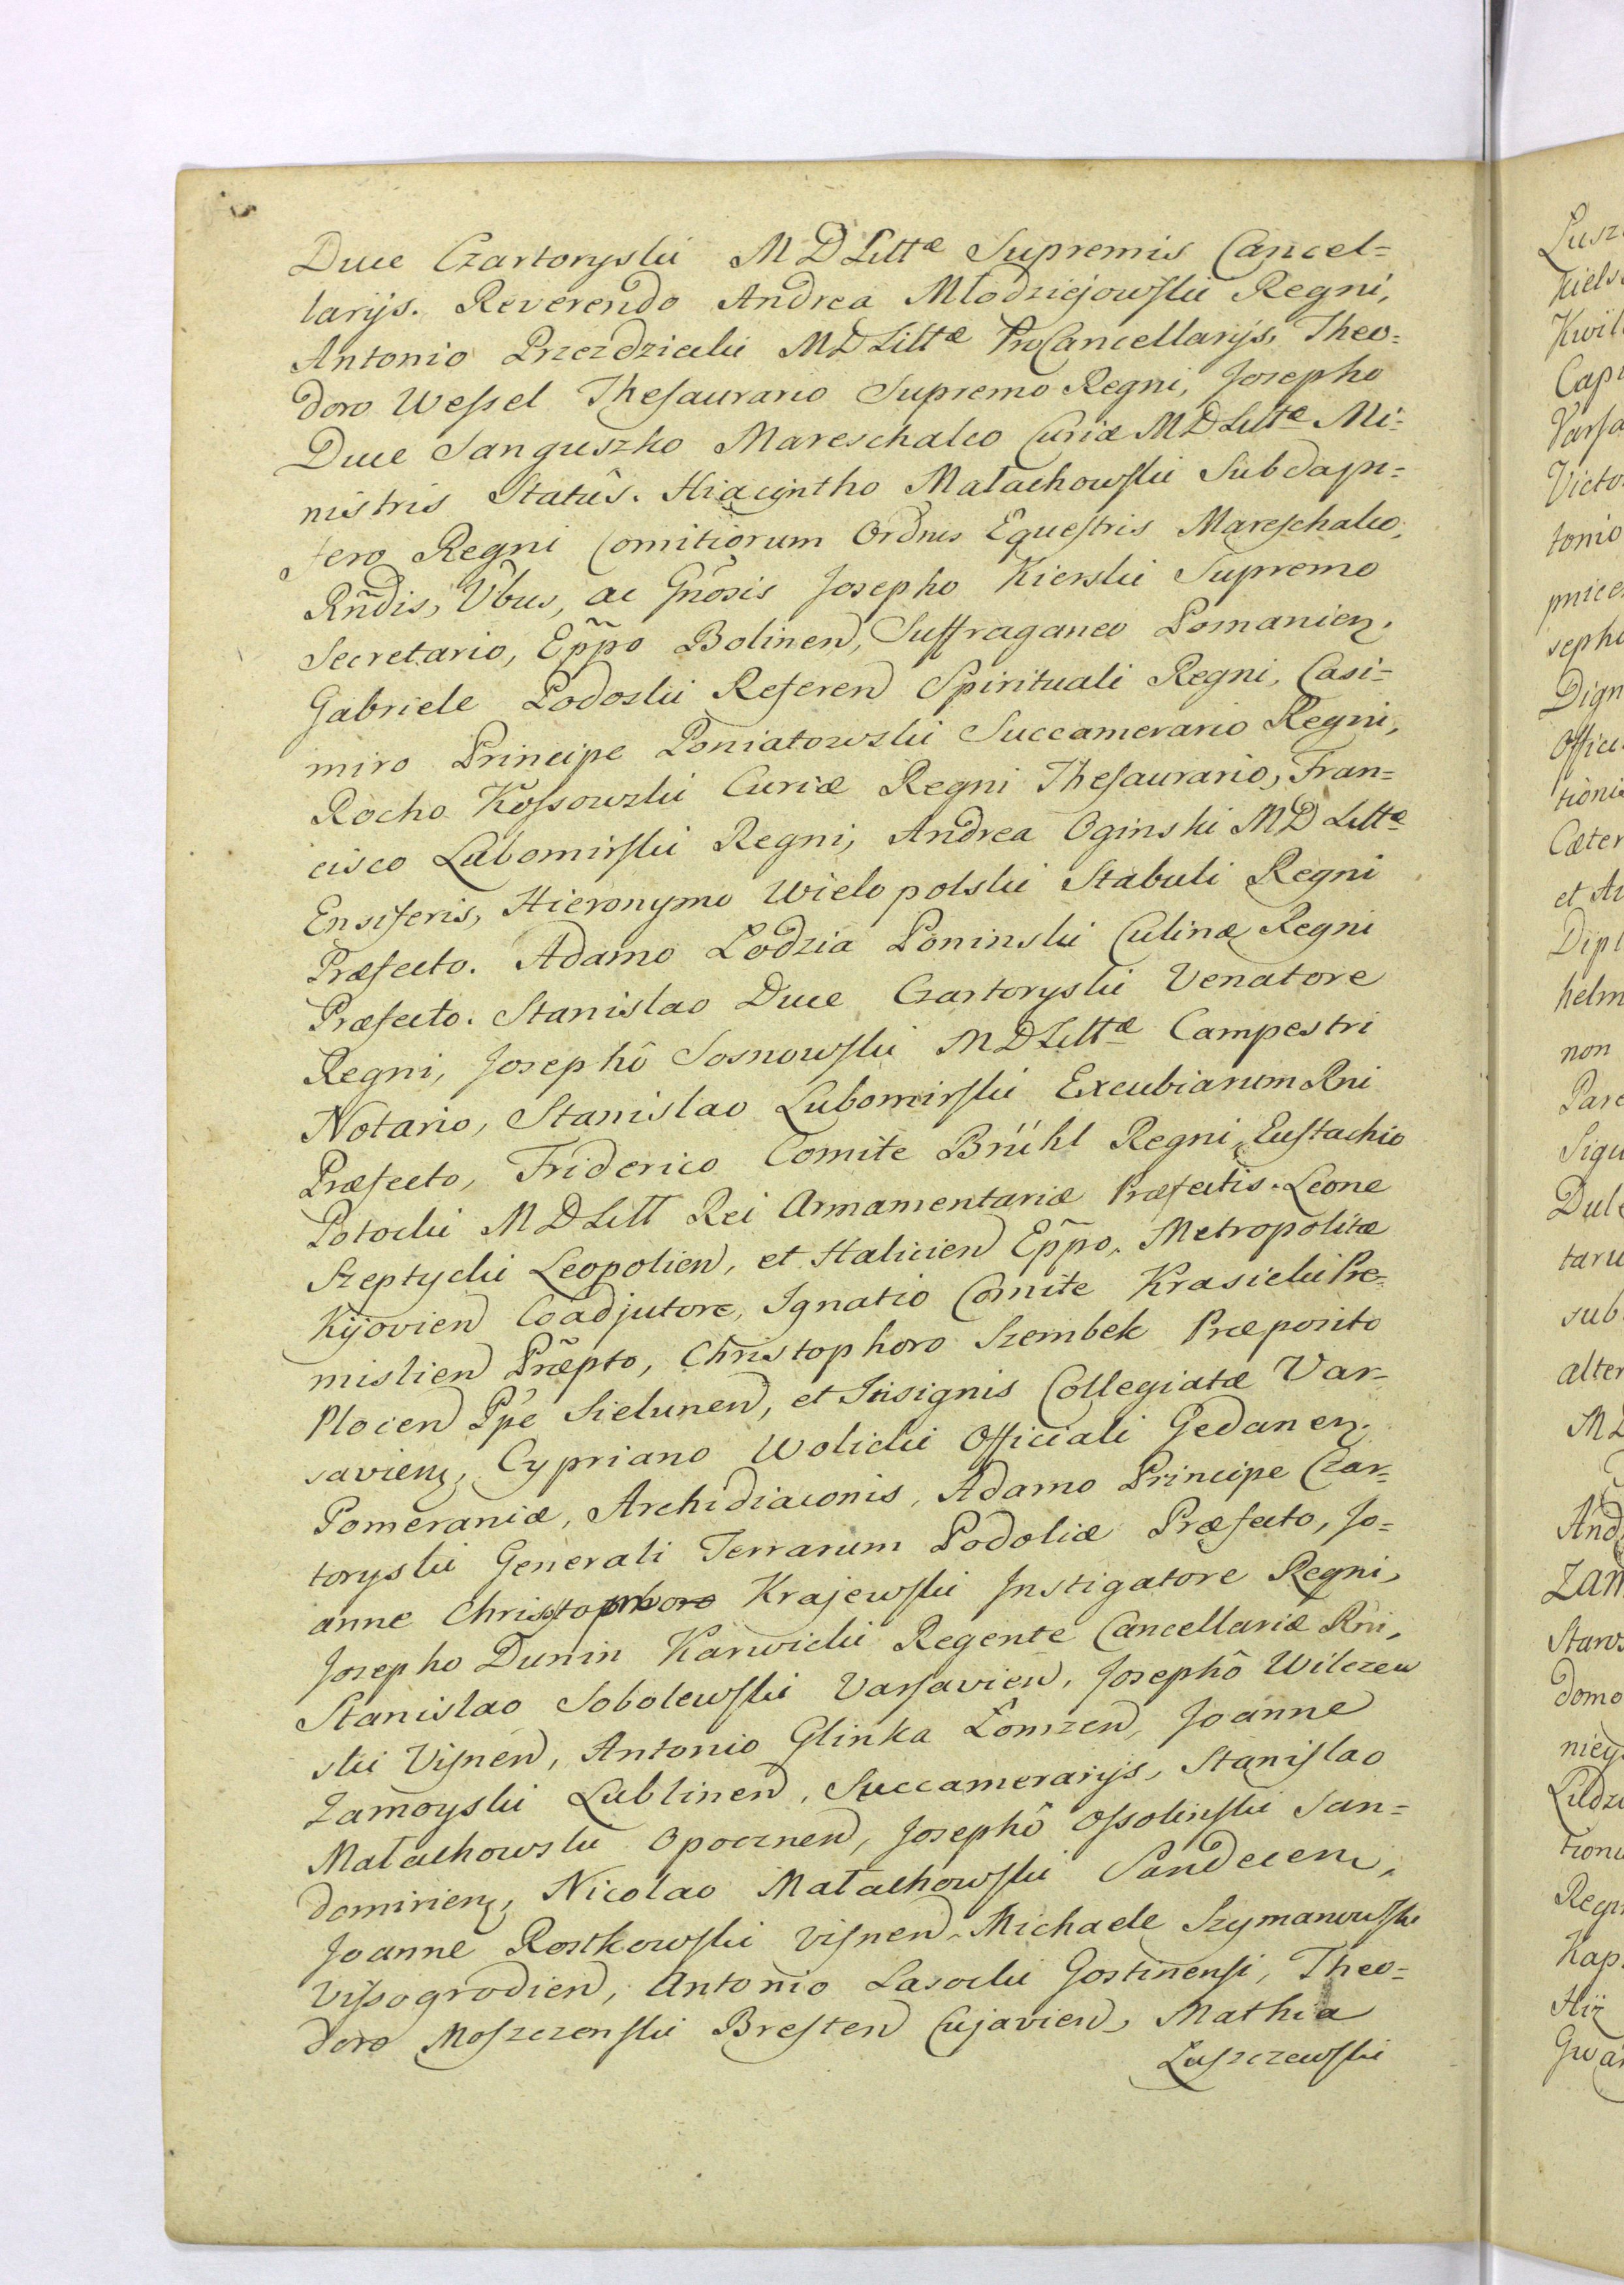 Duce Czartoryski M D Littæ Supremis Cancel=
larijs. Reverendo Andrea Młodziejowski Regni,
Antonio Przezdziecki MD Littæ ProCancellarijs, Theo=
doro Wessel Thesaurario Supremo Regni, Josepho
Duce Sanguszko Mareschalco Curiæ MD Littæ Mi=
nistris Statûs. Hiacyntho Małachowski Subdapi=
fero Regni Comitiorum Ordnis Equestris Mareschalco,
Rñdis, Vbus, ac Gñosis Josepho Kierski Supremo
Secretario, Eppõ Bolinen, Suffraganeo Posnanien,
Gabriele Podoski Referen Spirituali Regni, Casi=
miro Principe Poniatowski Succamerario Regni,
Rocho Kossowski Curiæ Regni Thesaurario, Fran=
cisco Lubomirski Regni, Andrea Oginski MD Littæ
Ensiferis, Hieronymo Wielopolski Stabuli Regni
Præfecto. Adamo Łodzia Poninski Culinæ Regni
Præfecto. Stanislao Duce Czartoryski Venatore
Regni, Josephô Sosnowski MD Littæ Campestri
Notario, Stanislao Lubomirski Excubiarum Rni
Præfecto, Friderico Comite Brühl Regni, Eustachio
Potocki MD Litt Rei Armamentariæ Præfectis. Leone
Szeptycki Leopolien, et Halicien Eppõ, Metropolitæ
Kijovien Coadjutore, Ignatio Comite Krasicki Pre=
mislien Præpto, Christophoro Szembek Præposito
Plocen Ppe Sielunen, et Insignis Collegiatæ Var=
savien, Cypriano Wolicki Officiali Gedanen
Pomeraniæ, Archidiaconis, Adamo Principe Czar=
toryski Generali Terrarum Podoliæ Præfecto, Jo=
anne Christophoro Krajewski Instigatore Regni,
Josepho Dunin Karwicki Regente Cancellariæ Rni,
Stanislao Sobolewski Varsavien, Josephô Wilczew
ski Visnen, Antonio Glinka Łomzen, Joanne
Zamoyski Lublinen, Succamerarijs, Stanislao
Małachowski Opocznen, Josephô Ossolinski San=
domirien, Nicolao Małachowski Sandecen,
Joanne Rostkowski Visnen, Michaele Szymanowski
Vissogrodien, Antonio Lasocki Gostinensi, Theo=
doro Moszczenski Bresten Cujavien, Mathia
Luszczewski